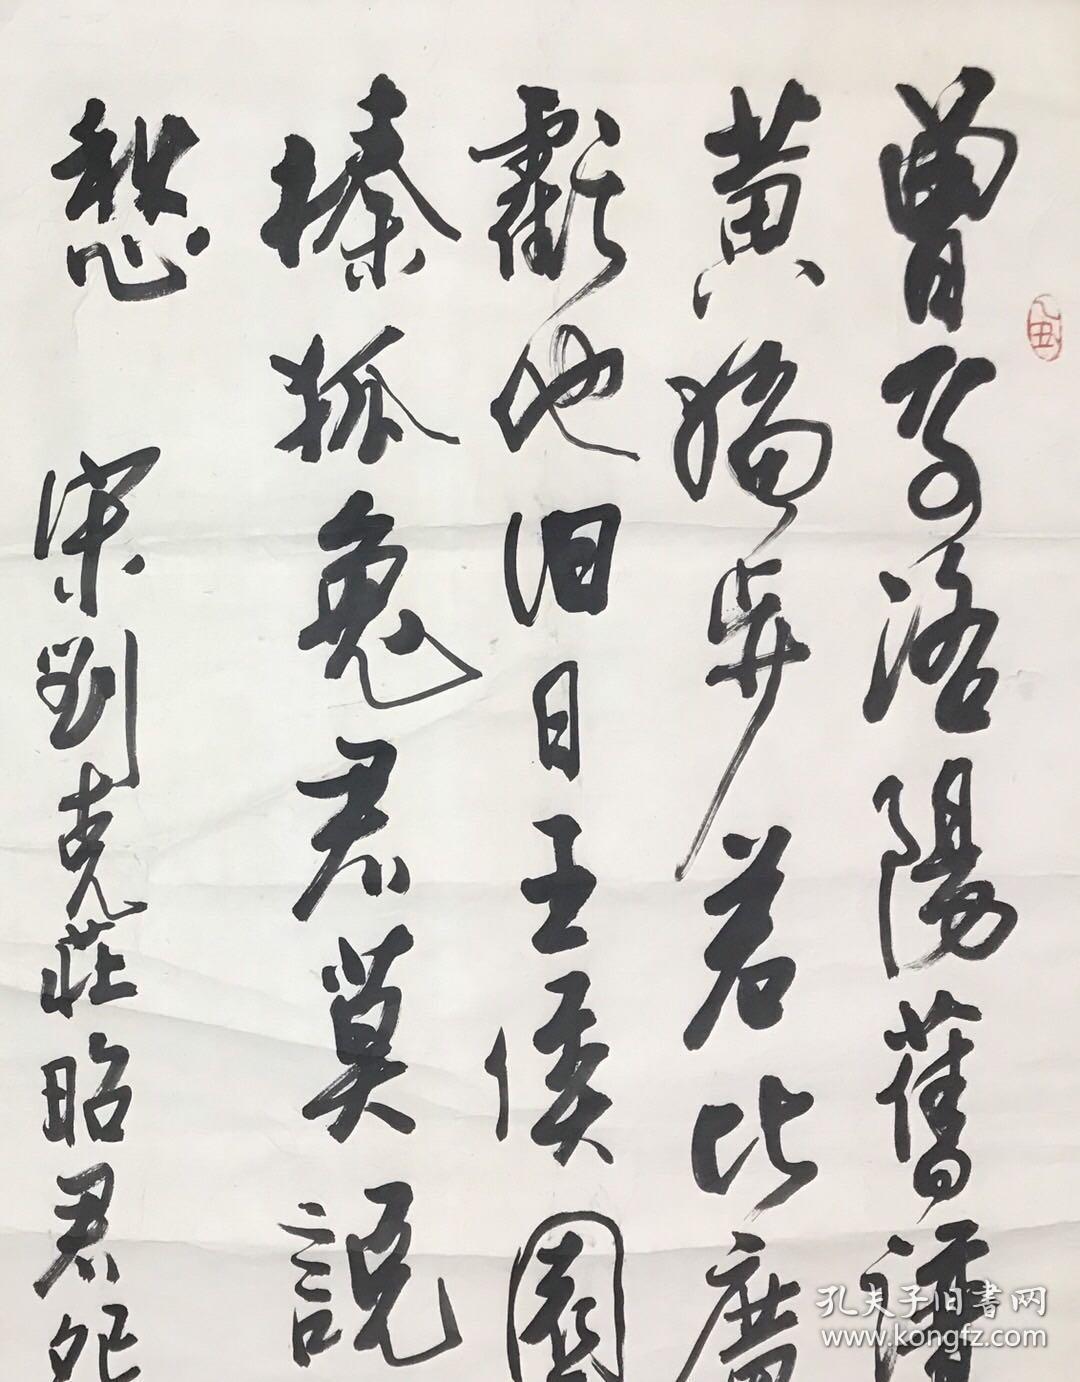 曾看洛陽舊譜
黃獨步若比廣
虧他旧日王侯園
榛狐兔君莫說
愁 宋劉克莊昭君怨
孔夫子旧書网
www.kongfz.com